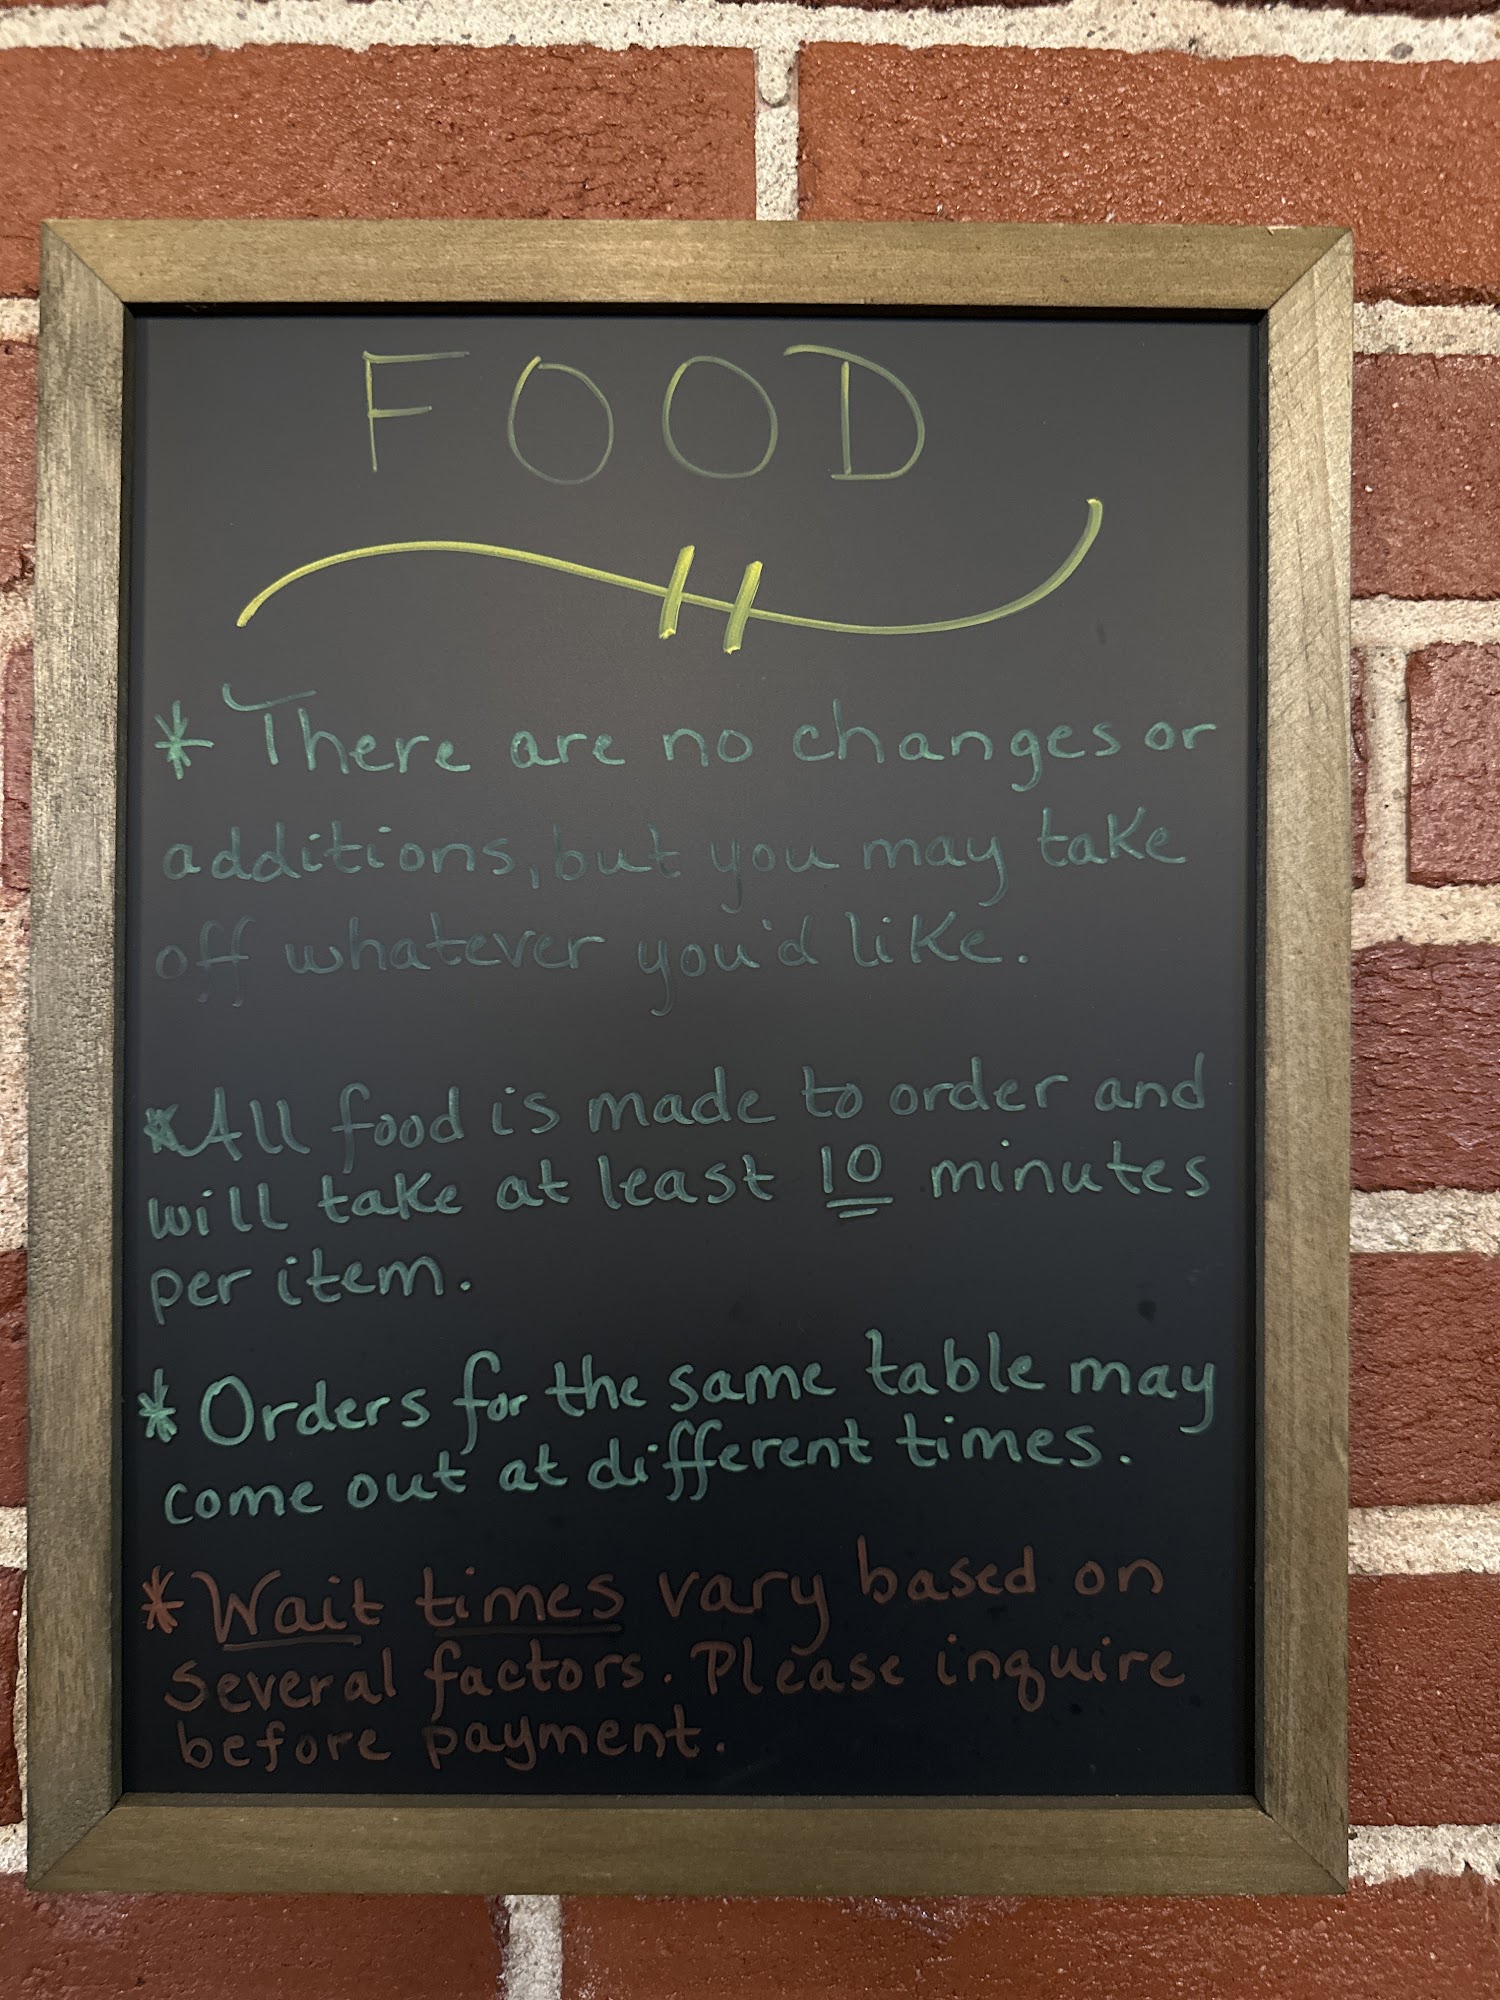 FOOD
* There are no changes or
additions, but you may take
off whatever you'd like.
* All food is made to order and
will take at least 10 minutes
per item.
* Orders for the same table may
come out at different times.
* Wait times vary based on
several factors. Please inquire
before payment.